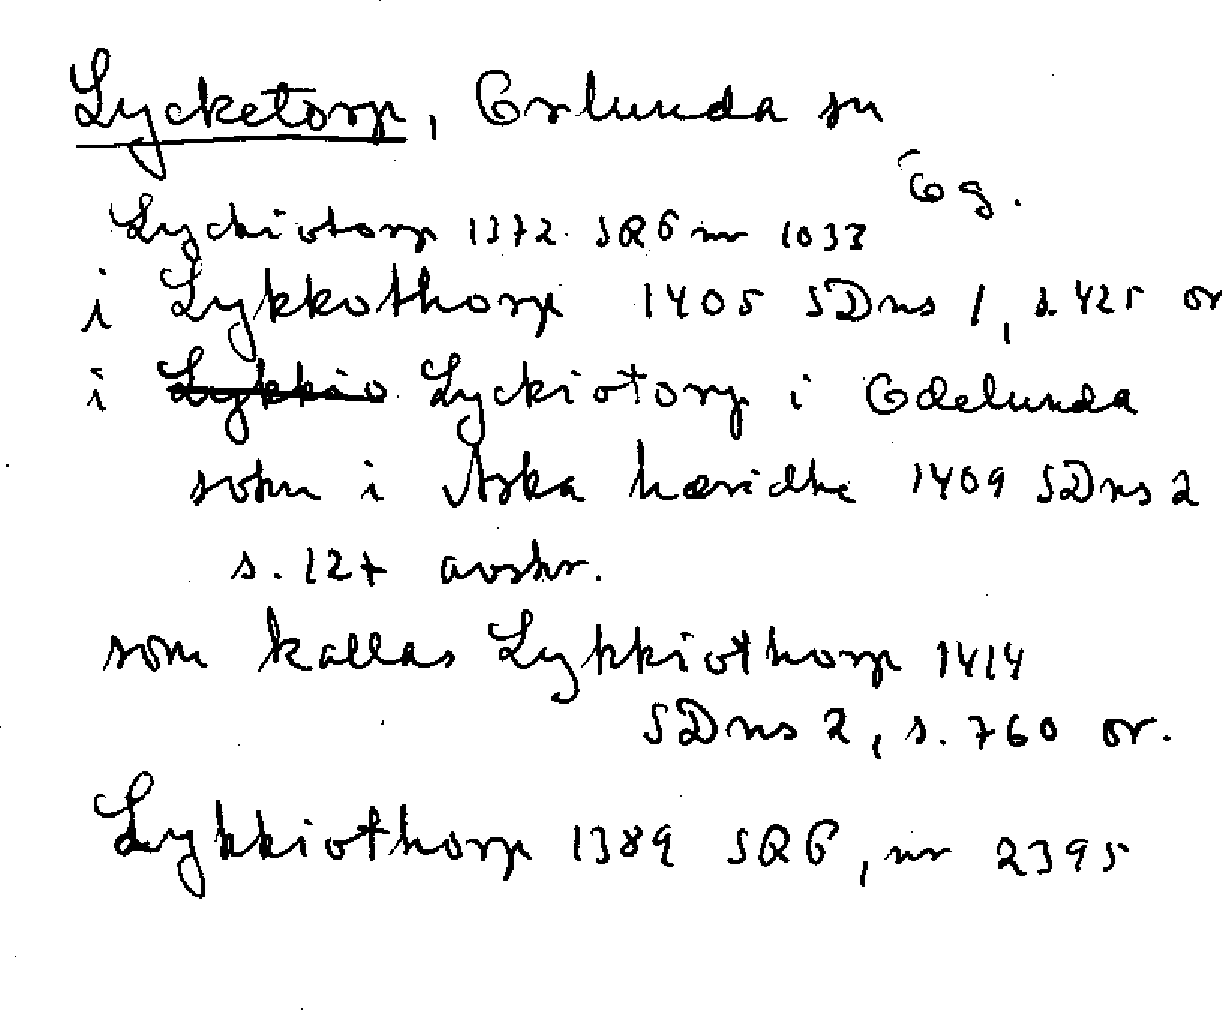 Lycketorp, Orlunda sn
Ög.
Lyckiotorp 1372 SRP nr 1033
i Lykkothorp 1405 SDns 1, s. 425 or
i Lykkio Lyckiotorp i Odelunda
sokn i Aska hæridhe 1409 SDns 2
s. 127 avskr.
som kallas Lykkiothorp 1414
SDns 2, s. 760 or.
Lykkiothorp 1389 SRP, nr 2395